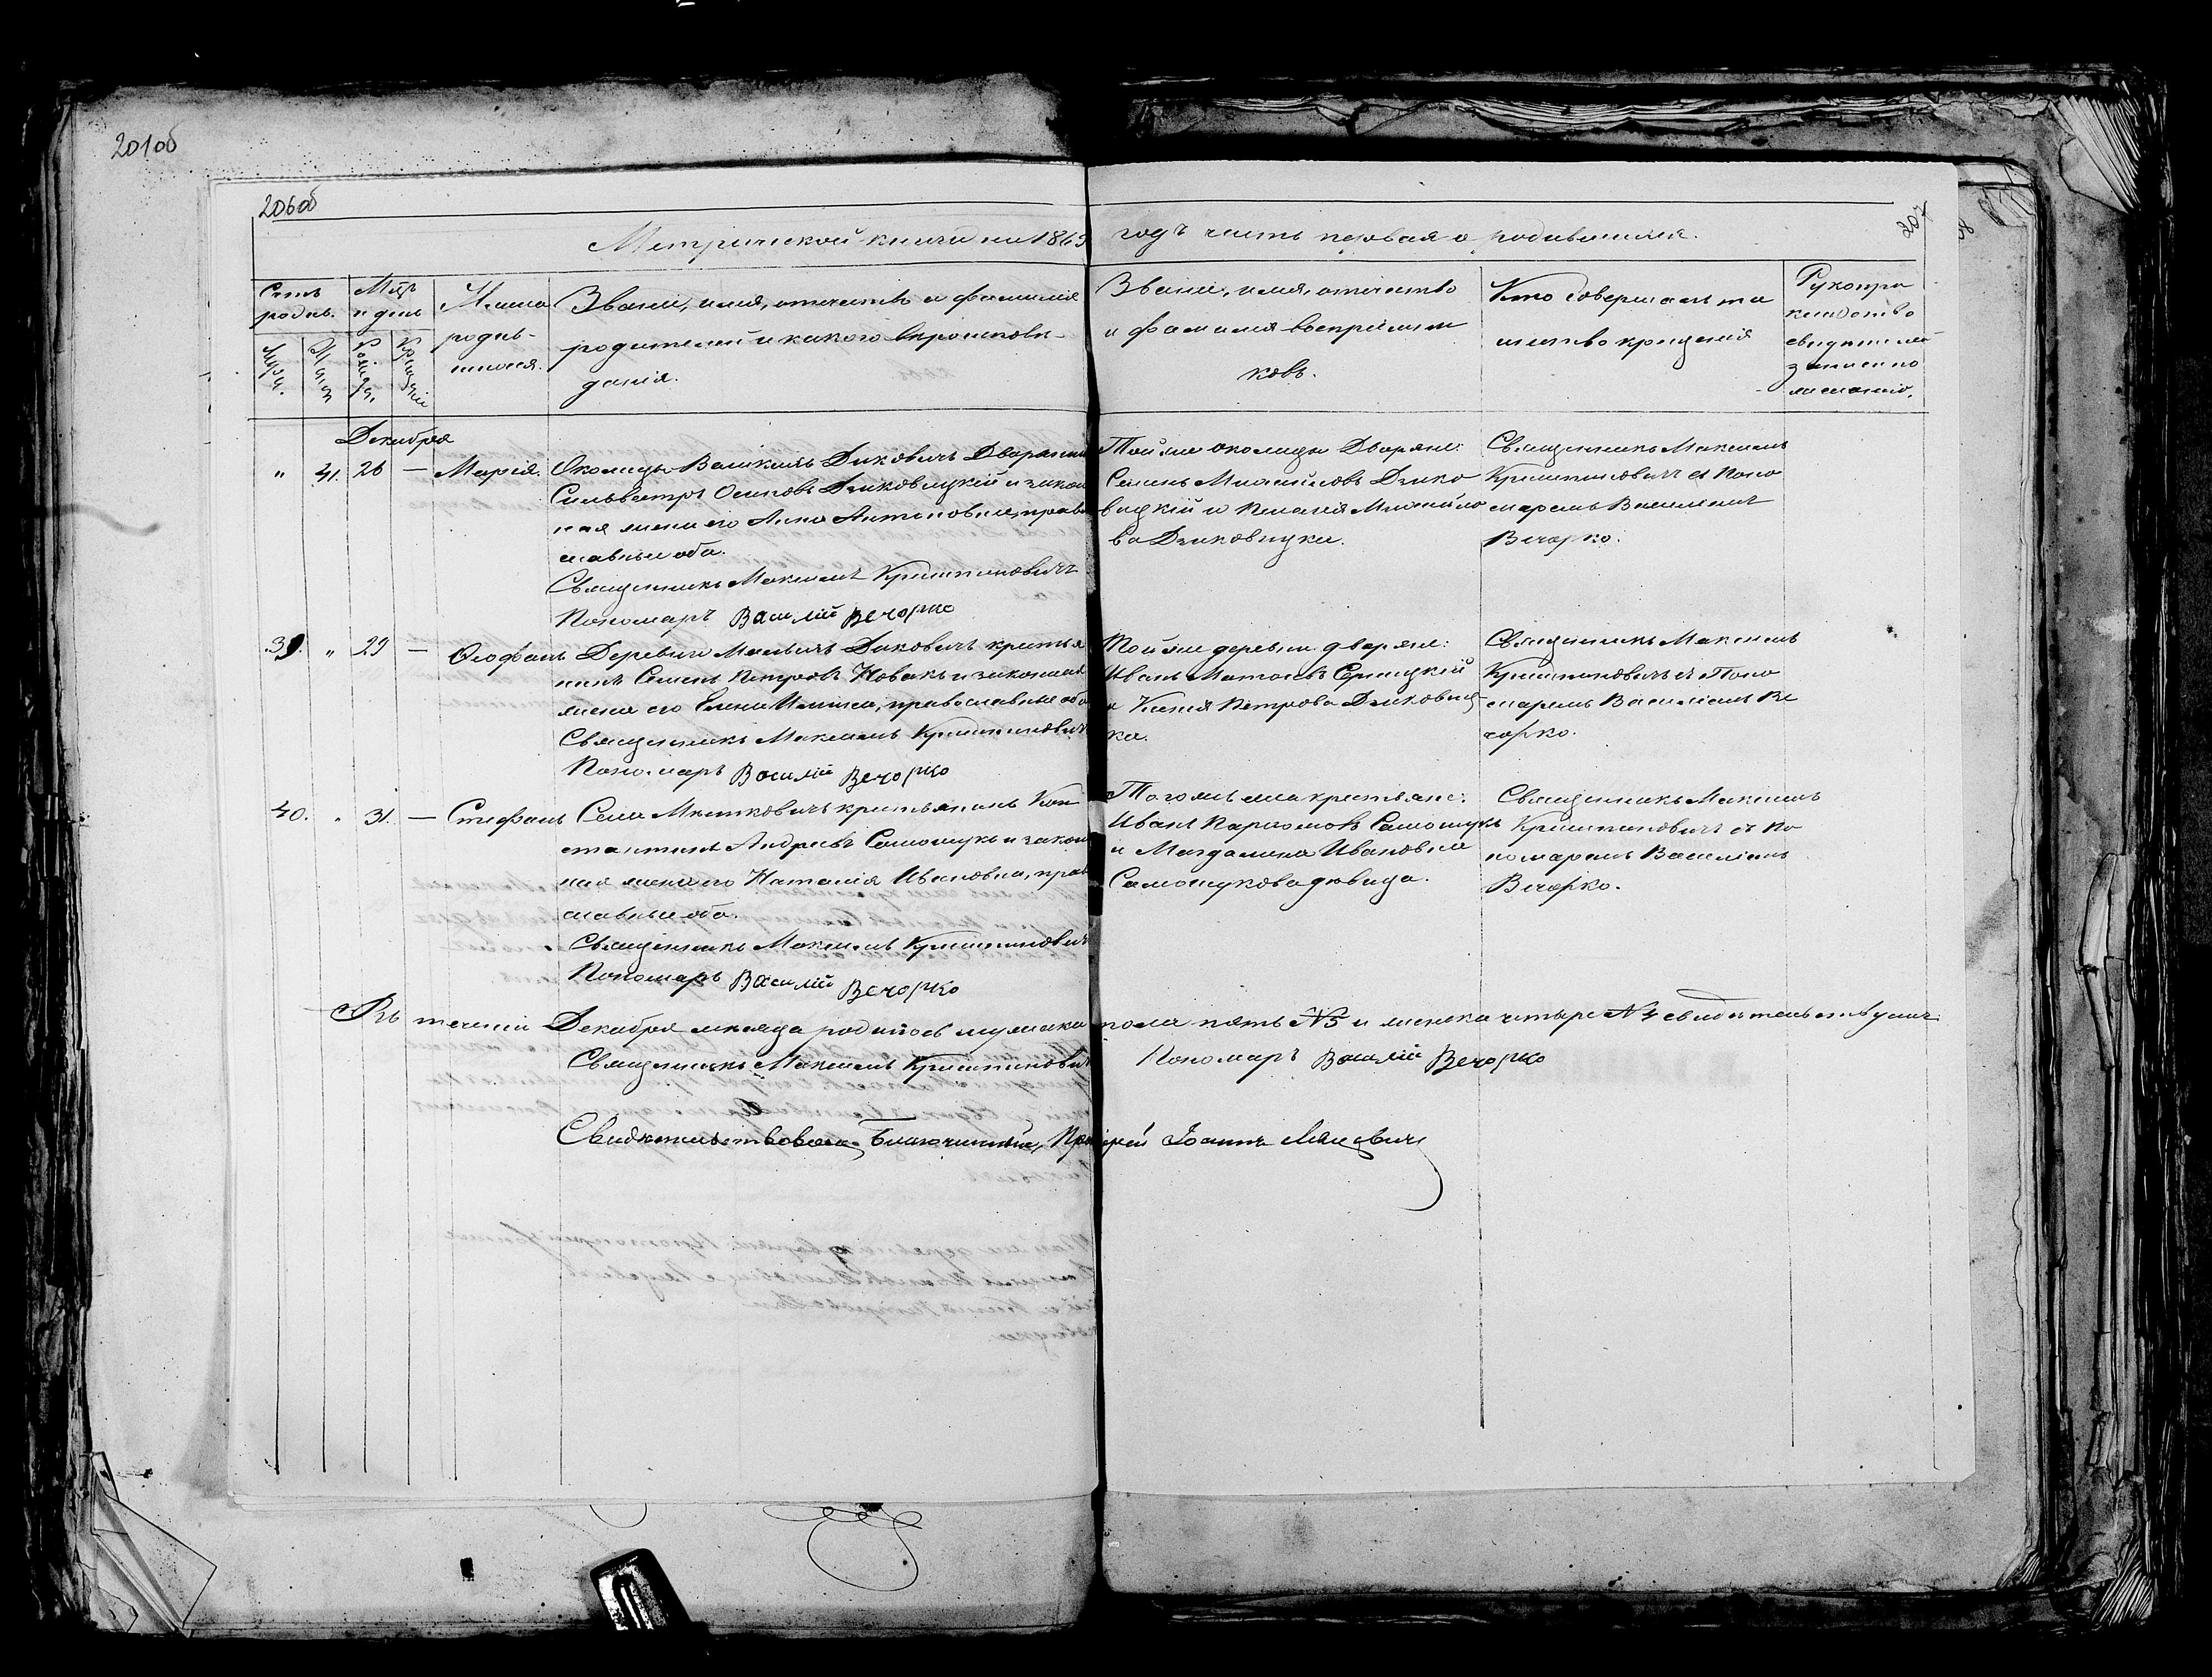 201об
206об
207
Метрической книги на 1863 годъ часть первая о родившихся.
Счетъ родив.
Мѣс. и день
Имена родив-
шихся.
Званіе, имя, отечество и фамилія
родителей и какого вѣроисповѣ-
данія.
Званіе, имя, отечество
и фамилія воспріемни
ковъ.
Кто совершалъ та
инство крещенія
Рукопри
кладство
свидѣтелей
записи по
желанію.
Декабря
" 41. 26 — Марія.
Околицы Великихъ Диковичъ Дворянинъ
Сильвестръ Осиповъ Дзиковицкій и закон
ная жена его Анна Антоновна, право
славные оба.
Священникъ Максимъ Криштановичъ
Пономарь Василій Вечорко
Той же околицы Дворяне:
Семенъ Михайловъ Дзико
вицкій и Пелагія Михайло
ва Дзиковицка.
Священникъ Максимъ
Криштановичъ съ Поно
маремъ Василіемъ
Вечорко.
39. " 29 — Феофанъ
Деревни Малыхъ Диковичъ крестья
нинъ Семенъ Петровъ Новакъ и законная
жена его Елена, православные оба
Священникъ Максимъ Криштановичъ
Пономарь Василій Вечорко
Той же деревни дворяне:
Иванъ Матвѣевъ
и Ксенія Петрова Дзиковиц
ка.
Священникъ Максимъ
Криштановичъ съ Поно
маремъ Василіемъ Ве
чорко.
40. " 31. — Стефанъ
Села Мѣстковичъ крестьянинъ Кон
стантинъ Андреевъ Самошукъ и закон
ная жена его Наталія Ивановна, право
славные оба.
Священникъ Максимъ Криштановичъ
Пономарь Василій Вечорко
Того жъ села крестьяне:
Иванъ Пархомовъ Самошукъ
и Магдалина Ивановна
Самошукова дѣвица.
Священникъ Максимъ
Криштановичъ съ По
номаремъ Василіемъ
Вечорко.
Въ теченіи Декабря мѣсяца родилось мужеска пола пять №5 и женска четыре №4 свидѣтельствуемъ
Священникъ Максимъ Криштановичъ
Пономарь Василій Вечорко
Свидѣтельствовалъ Благочинный, Протоіерей Іоаннъ